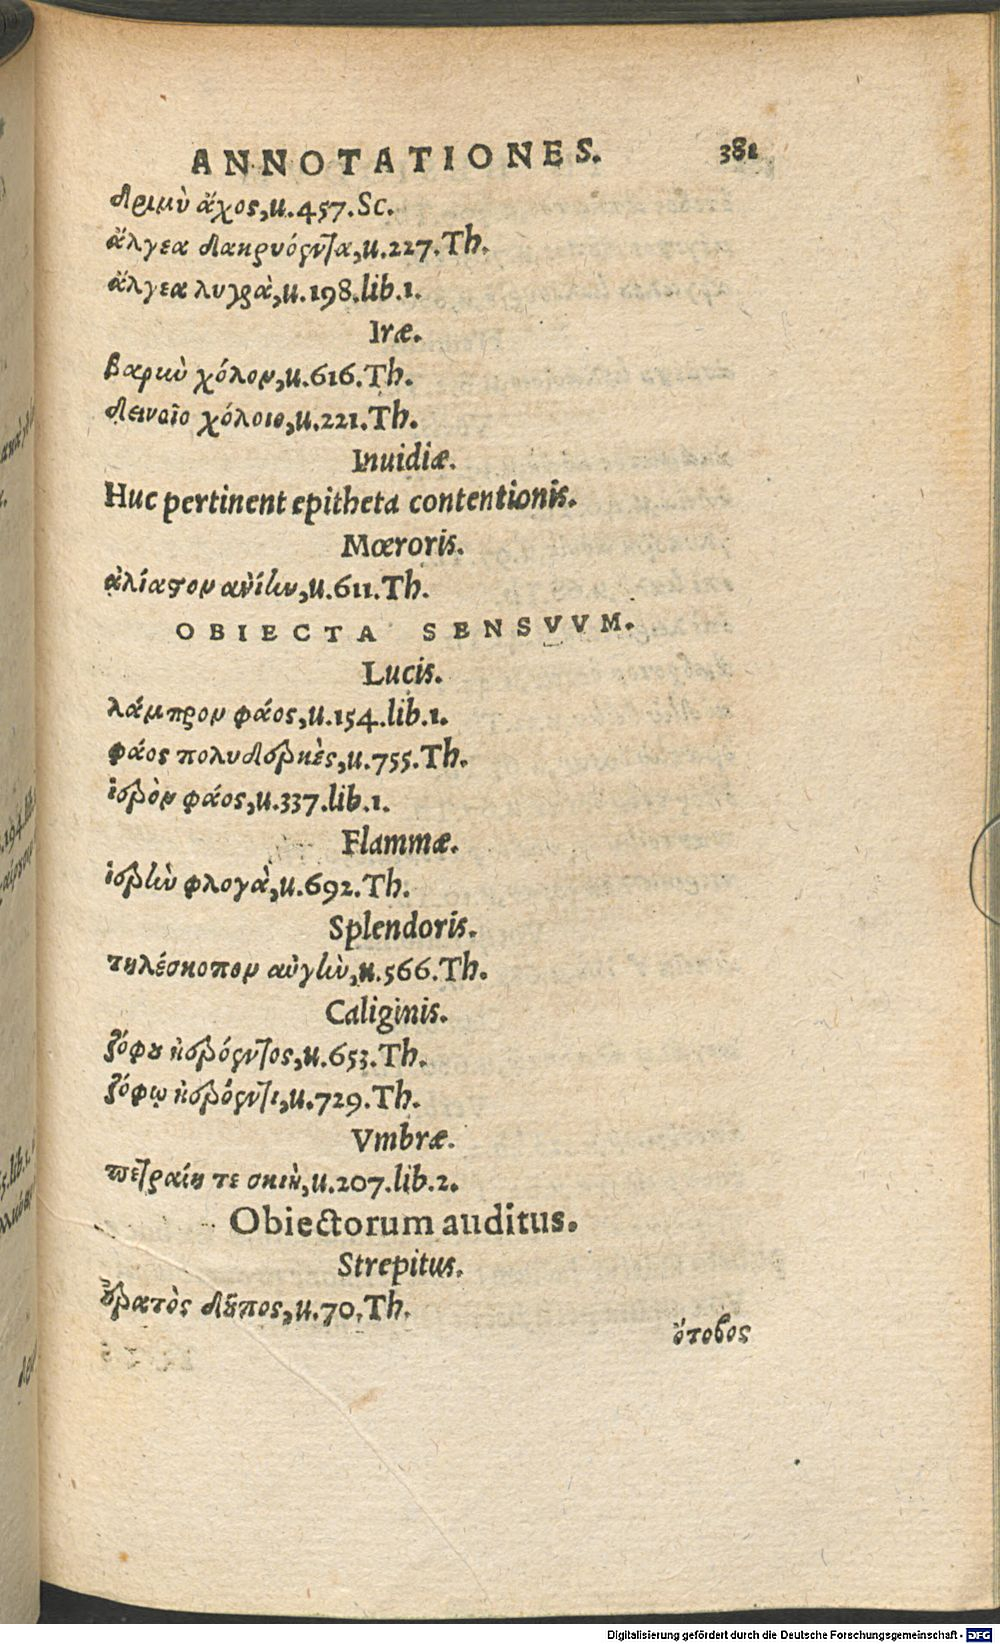 ANNOTATIONES. 381
δριμὺ ἄχος,κ.457.Sc.
ἄλγεα δακρυόεντα,κ.227.Th.
ἄλγεα λυγρὰ,κ.198.lib.1.
Iræ.
βαρκὺ χόλον,κ.616.Th.
δεινοῖο χόλοιο,κ.221.Th.
Inuidiæ.
Huc pertinent epitheta contentionis.
Mœroris.
ἀλίαστον ἀνίην,κ.611.Th.
OBIECTA SENSVVM.
Lucis.
λάμπρον φάος,κ.154.lib.1.
φάος πολυδερκὲς,κ.755.Th.
ἱερὸν φάος,κ.337.lib.1.
Flammæ.
ἱερὴν φλογὰ,κ.692.Th.
Splendoris.
τηλέσκοπον αὐγὴν,κ.566.Th.
Caliginis.
ζόφου ἠερόεντος,κ.653.Th.
ζόφῳ ἠερόεντι,κ.729.Th.
Vmbræ.
πετραίη τε σκιὴ,κ.207.lib.2.
Obiectorum auditus.
Strepitus.
ἐρατὸς δοῦπος,κ.70.Th.
ὄτοβος
Digitalisierung gefördert durch die Deutsche Forschungsgemeinschaft - DFG